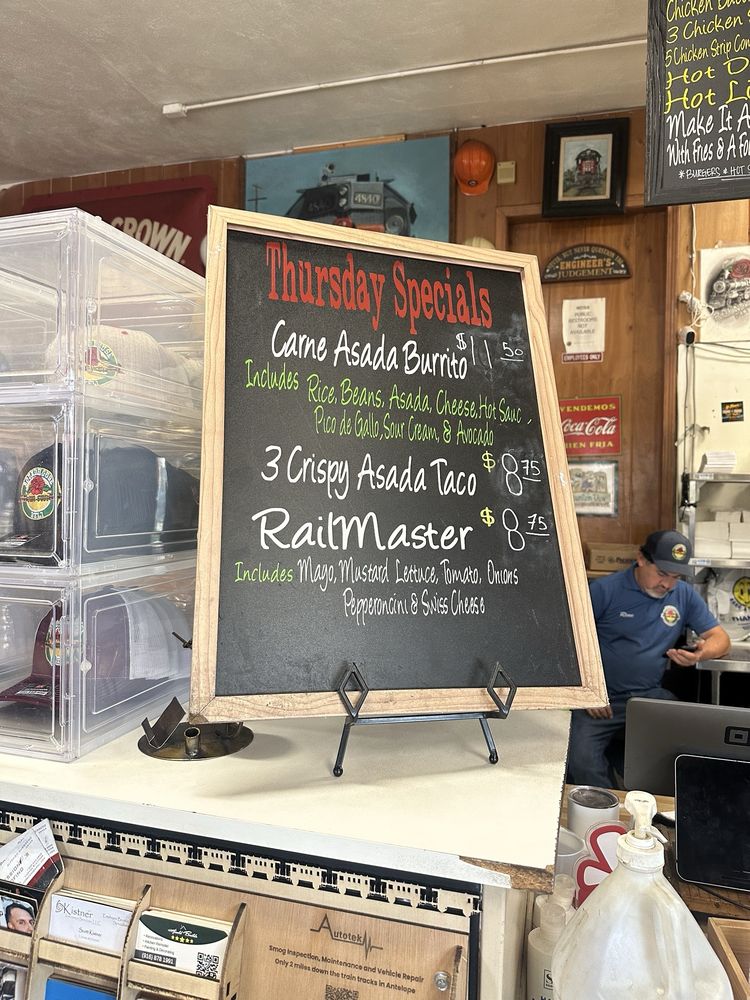 Thursday Specials
Carne Asada Burrito $11 50
Includes Rice, Beans, Asada, Cheese, Hot Sauc,
Pico de Gallo, Sour Cream, & Avocado
3 Crispy Asada Taco $8 75
RailMaster $8 75
Includes Mayo, Mustard Lettuce, Tomato, Onions
Pepperoncini & Swiss Cheese
3 Chicken
5 Chicken Strip
Hot D
Hot Li
Make It A
With Fries & A Fo
*BURGERS & HOT
CROWN
4840
4840
ENGINEER'S
JUDGEMENT
NOTICE
PUBLIC
RESTROOMS
NOT
AVAILABLE
EMPLOYEES ONLY
VENDEMOS
Coca-Cola
BIEN FRIA
THANK
Kistner
Autotek
Smog Inspection, Maintenance and Vehicle Repair
Only 2 miles down the train tracks in Antelope
(916) 878 1991